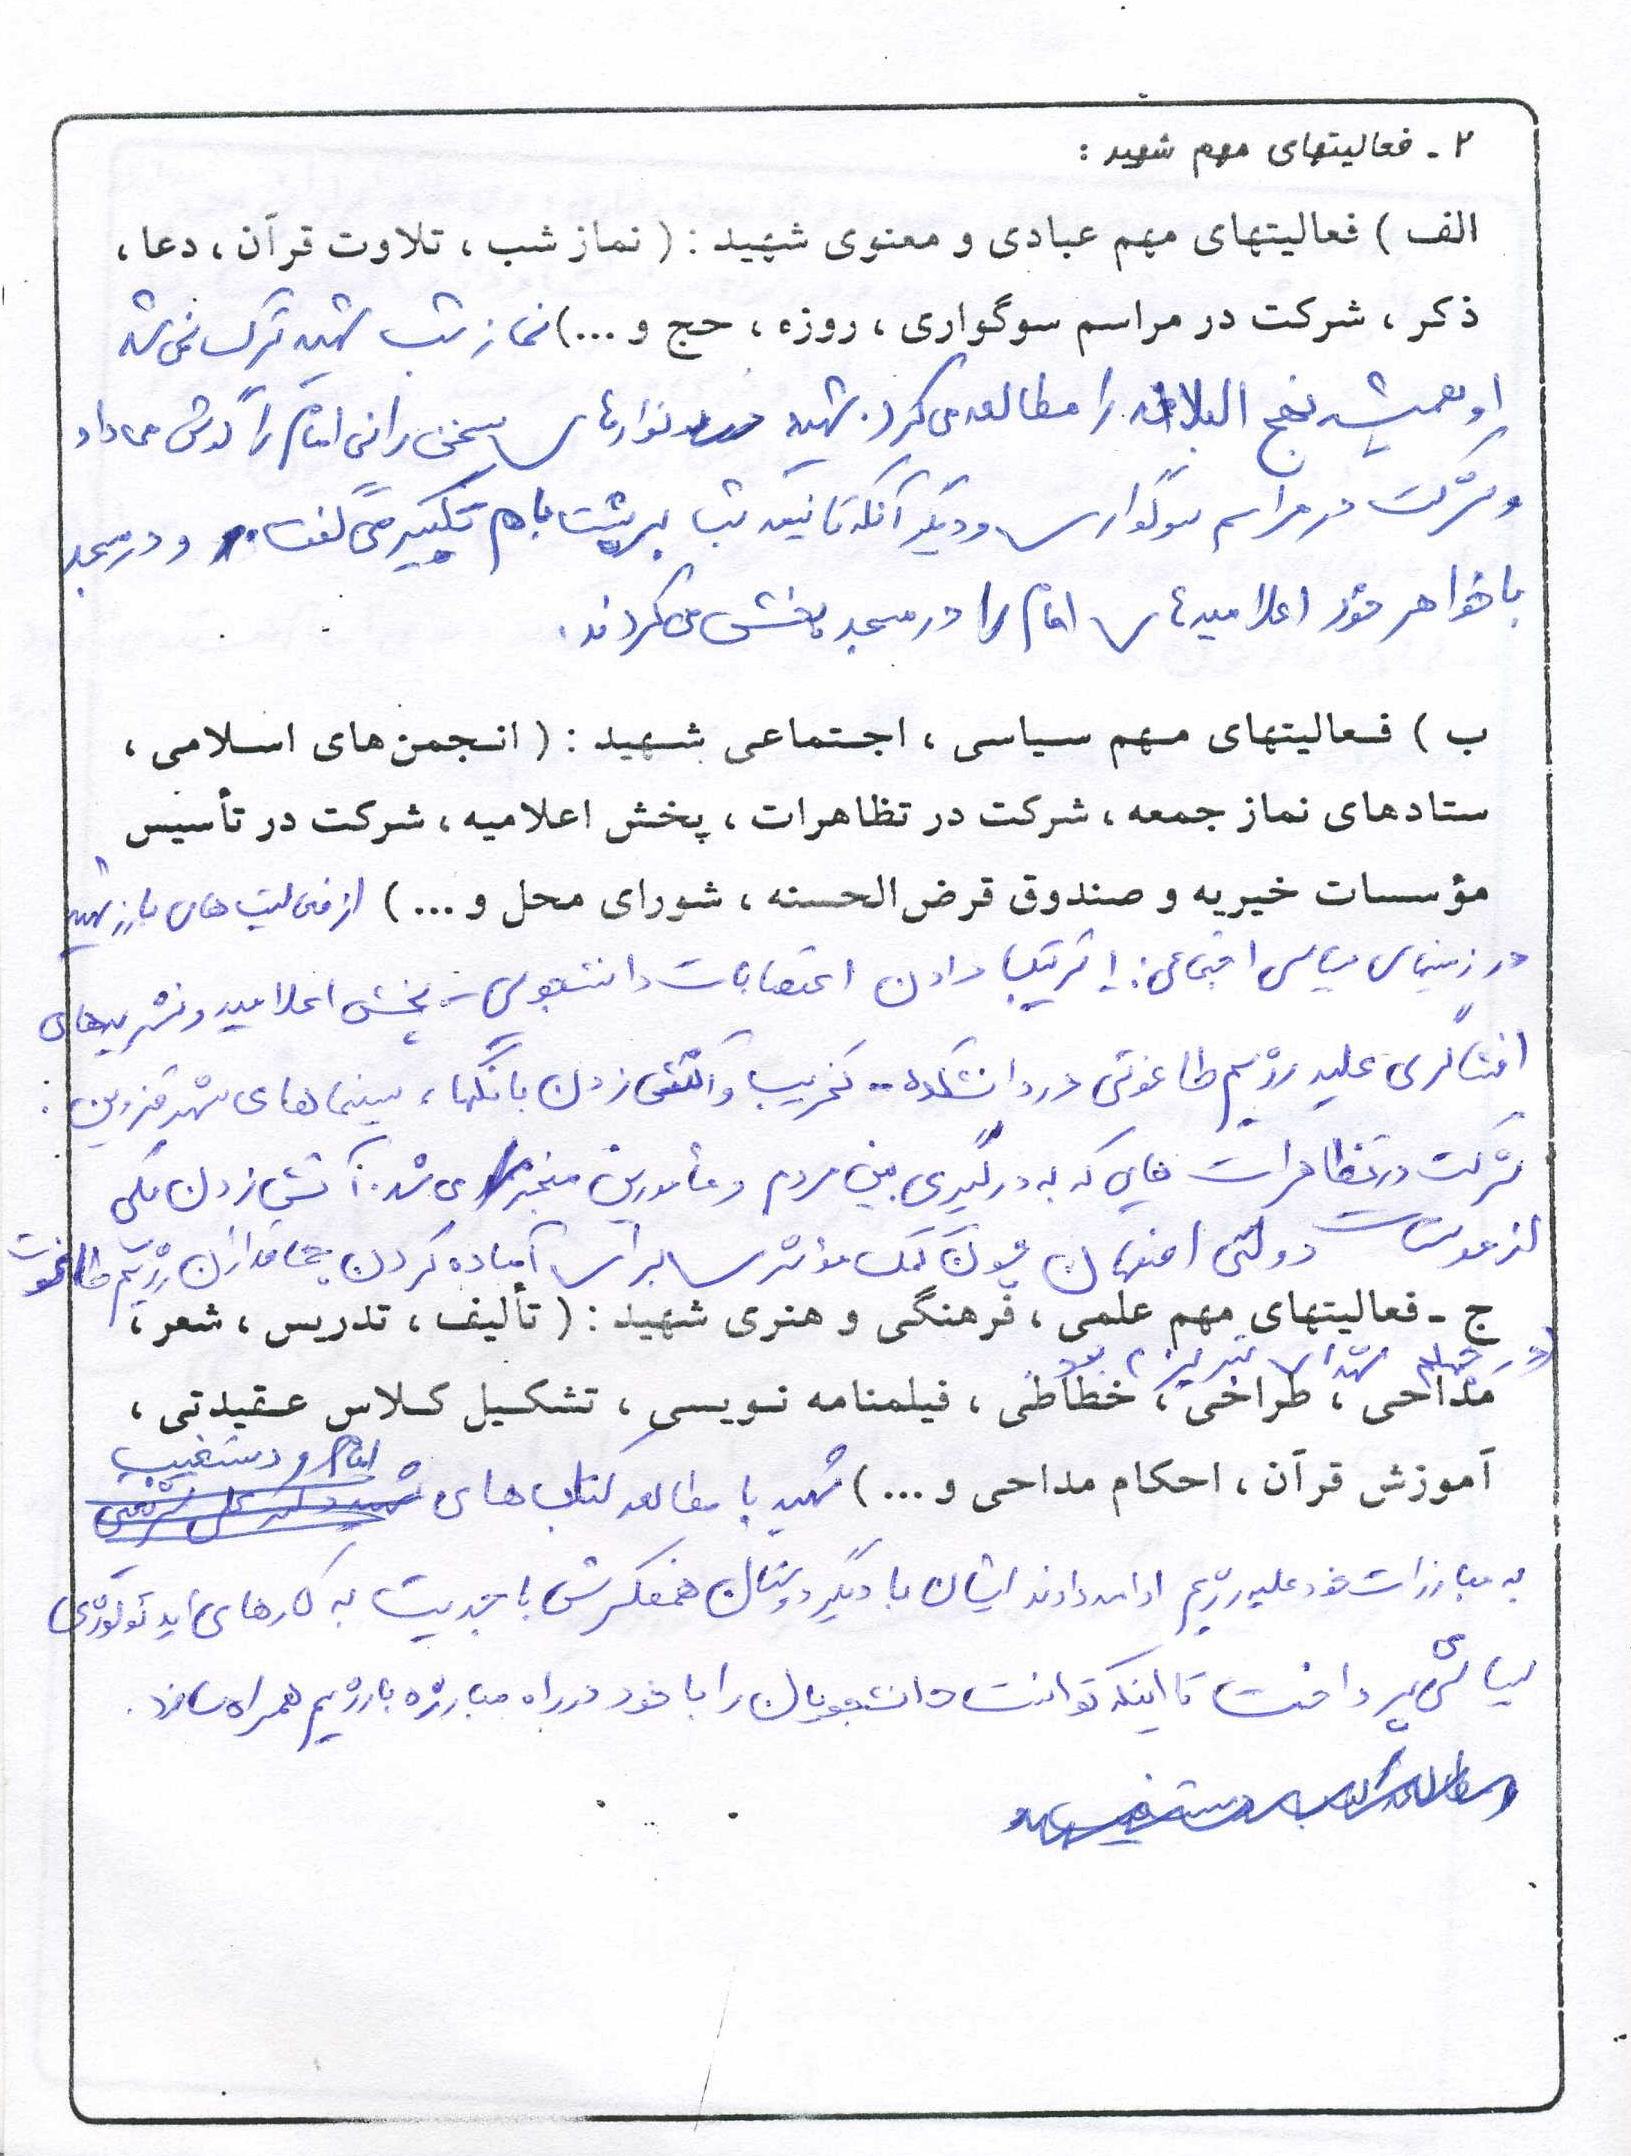 ۲ ـ فعالیتهای مهم شهید :
الف ) فعالیتهای مهم عبادی و معنوی شهید : ( نماز شب ، تلاوت قرآن ، دعا ،
ذکر ، شرکت در مراسم سوگواری ، روزه ، حج و ...) نماز شب شهید ترک نمی شد
او همیشه نهج البلاغه را مطالعه می کرد. شهید نوارهای سخنرانی امام را گوش می داد
و شرکت در مراسم سوگواری و دیگر آنکه تا نیمه شب بر پشت بام تکبیر می گفت. و در مسجد
با خواهر خود اعلامیه های امام را در مسجد پخش می کردند.
ب ) فعالیتهای مهم سیاسی ، اجتماعی شهید : ( انجمن های اسلامی ،
ستادهای نماز جمعه ، شرکت در تظاهرات ، پخش اعلامیه ، شرکت در تأسیس
مؤسسات خیریه و صندوق قرض الحسنه ، شورای محل و ... ) از فعالیت های بارز شهید
در زمینه های سیاسی اجتماعی : ترتیب دادن اعتصابات دانشجویی - پخش اعلامیه و نشریه های
افشاگری علیه رژیم طاغوتی در دانشکده - تخریب و آتش زدن بانکها ، سینماهای شهر قزوین :
شرکت در تظاهرات هایی که به درگیری بین مردم و مأمورین منجر می شد. آتش زدن یکی
از دولتی اصفهان کمک مؤثری برای آماده کردن رژیم طاغوت
ج ـ فعالیتهای مهم علمی ، فرهنگی و هنری شهید : ( تألیف ، تدریس ، شعر ،
در چهلم شهدای تبریز بود.
مداحی ، طراحی ، خطاطی ، فیلمنامه نویسی ، تشکیل کلاس عقیدتی ،
امام و دستغیب
آموزش قرآن ، احکام مداحی و ... ) شهید با مطالعه کتاب های
به مبارزات خود علیه رژیم ادامه دادند ایشان با دیگر دوستان همفکرش با جدیت به کارهای ایدئولوژی
سیاسی پرداخت تا اینکه توانست دانشجویان را با خود در راه مبارزه با رژیم همراه سازد.